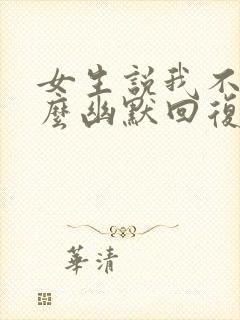 女生説我不
麼幽默回復
華清